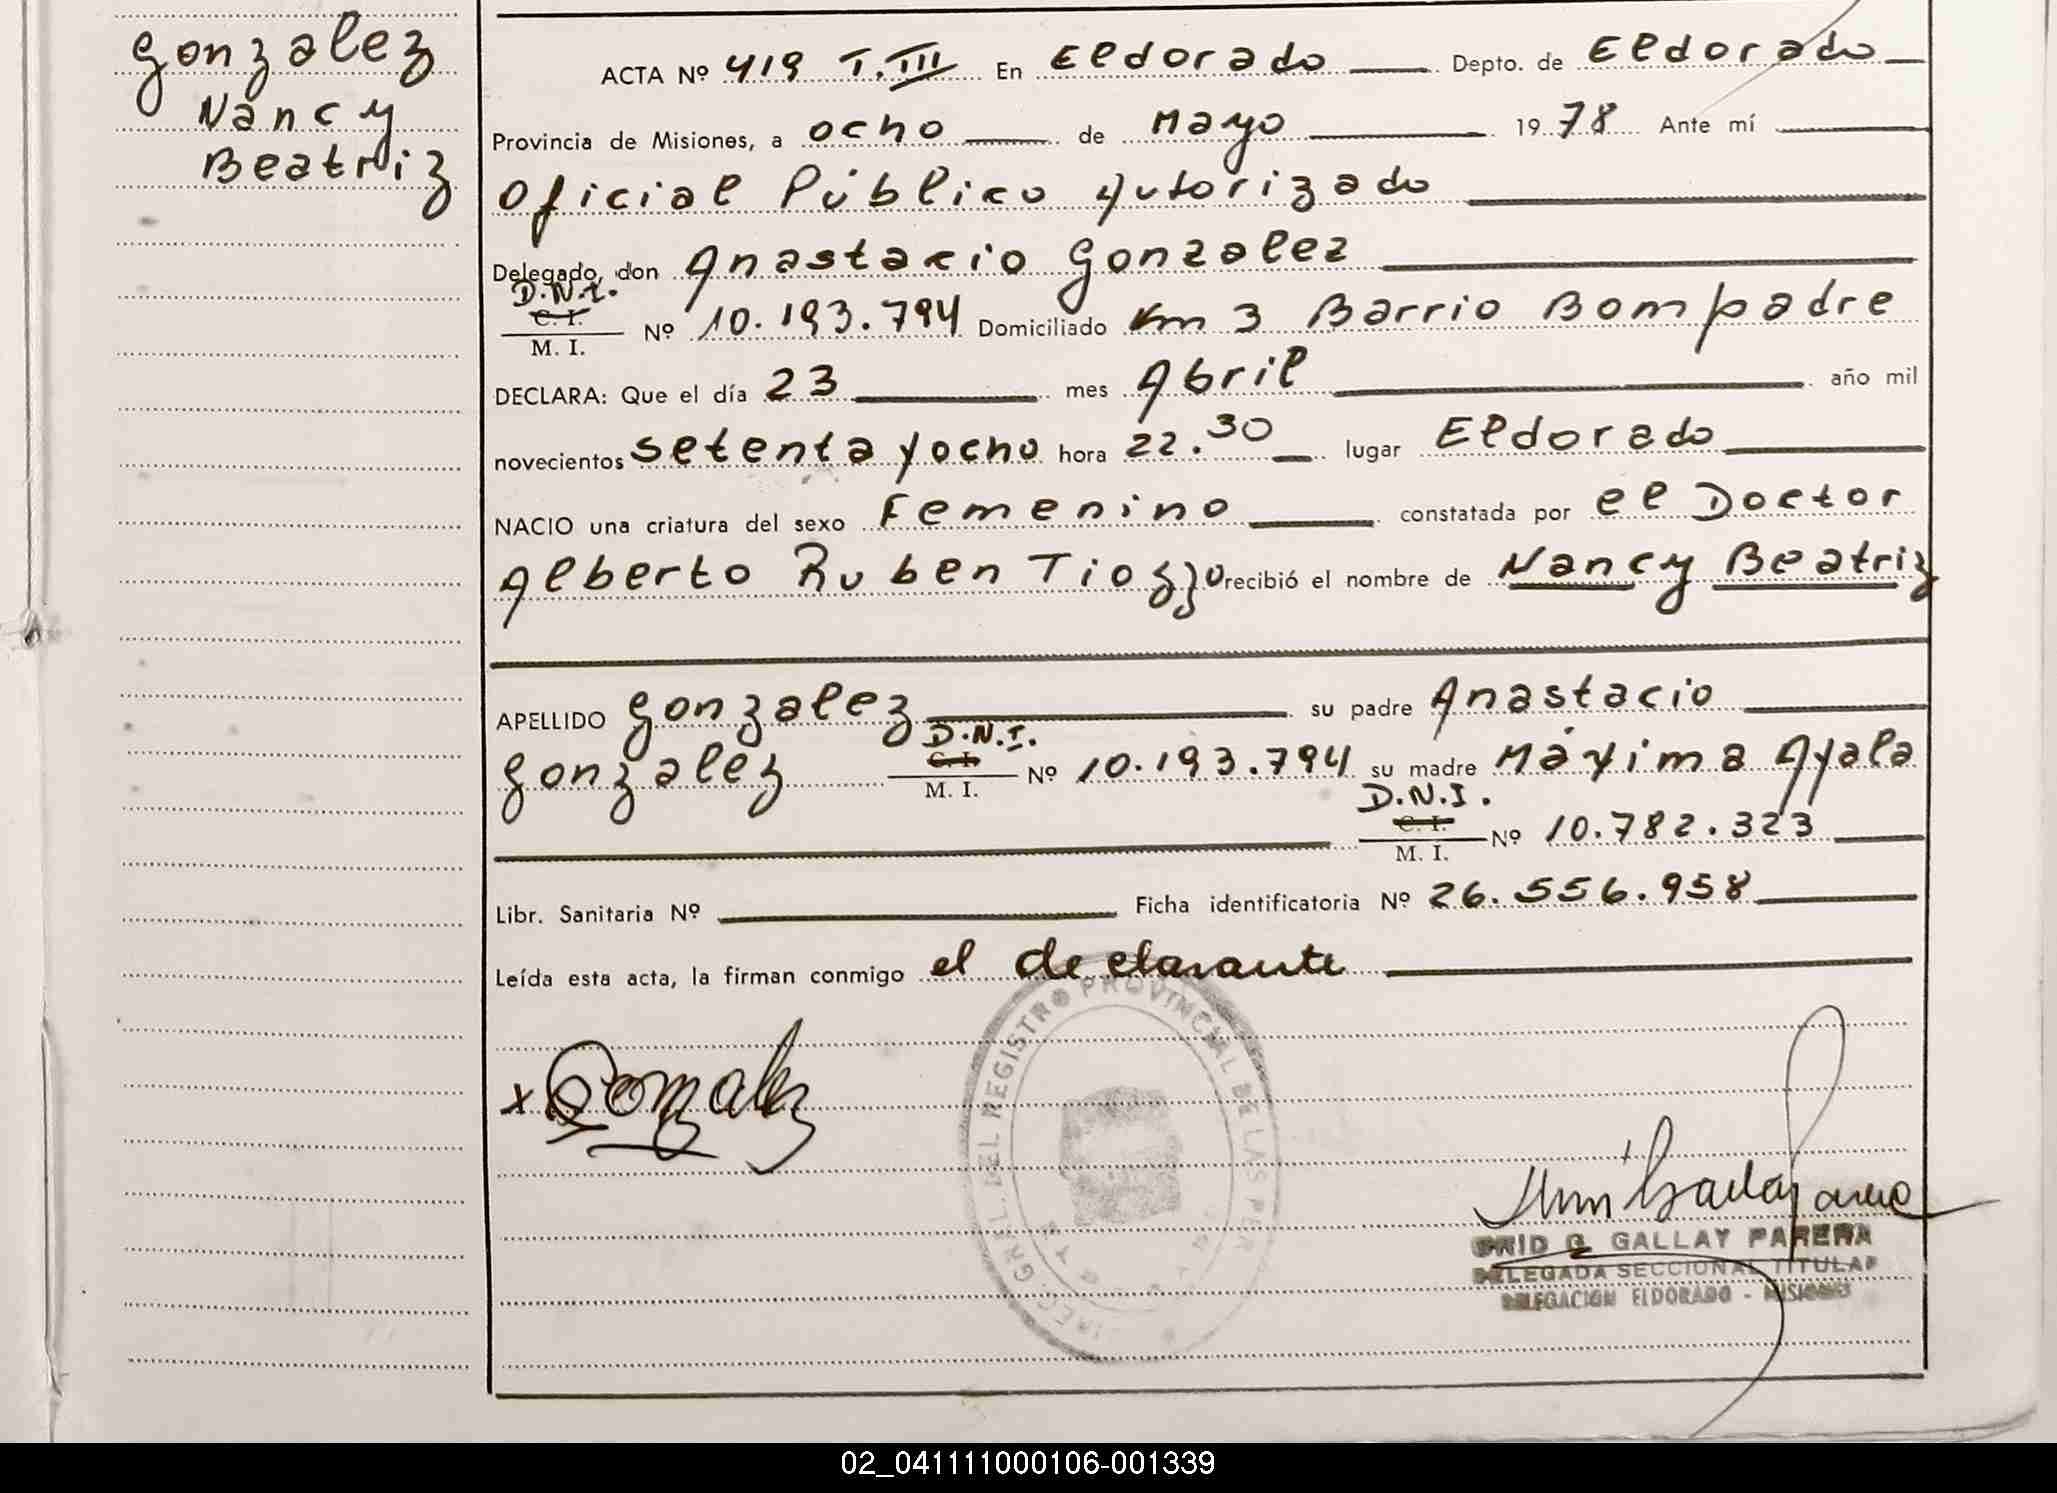 Gonzalez
Nancy
Beatriz
ACTA Nº 419 T.III En Eldorado Depto. de Eldorado
Provincia de Misiones, a ocho de Mayo 1978 Ante mí
Oficial Público Autorizado
Delegado, don Anastacio Gonzalez
D.N.I.
C. I.
M. I. Nº 10.193.794 Domiciliado Km 3 Barrio Bompadre
DECLARA: Que el día 23 mes Abril año mil
novecientos setenta y ocho hora 22.30 lugar Eldorado
NACIO una criatura del sexo Femenino constatada por el Doctor
Alberto Ruben Tiozzo recibió el nombre de Nancy Beatriz
APELLIDO Gonzalez su padre Anastacio
Gonzalez D.N.I. C. I. M. I. Nº 10.193.794 su madre Máxima Ayala
D.N.I. C. I. M. I. Nº 10.782.323
Libr. Sanitaria Nº Ficha identificatoria Nº 26.556.958
Leída esta acta, la firman conmigo el declarante
x Gonzalez
DEL REGISTRO PROVINCIAL DE LAS PER
G. GALLAY PARERA
DELEGADA SECCIONAL TITULAR
DELEGACION ELDORADO - MISIONES
02_041111000106-001339